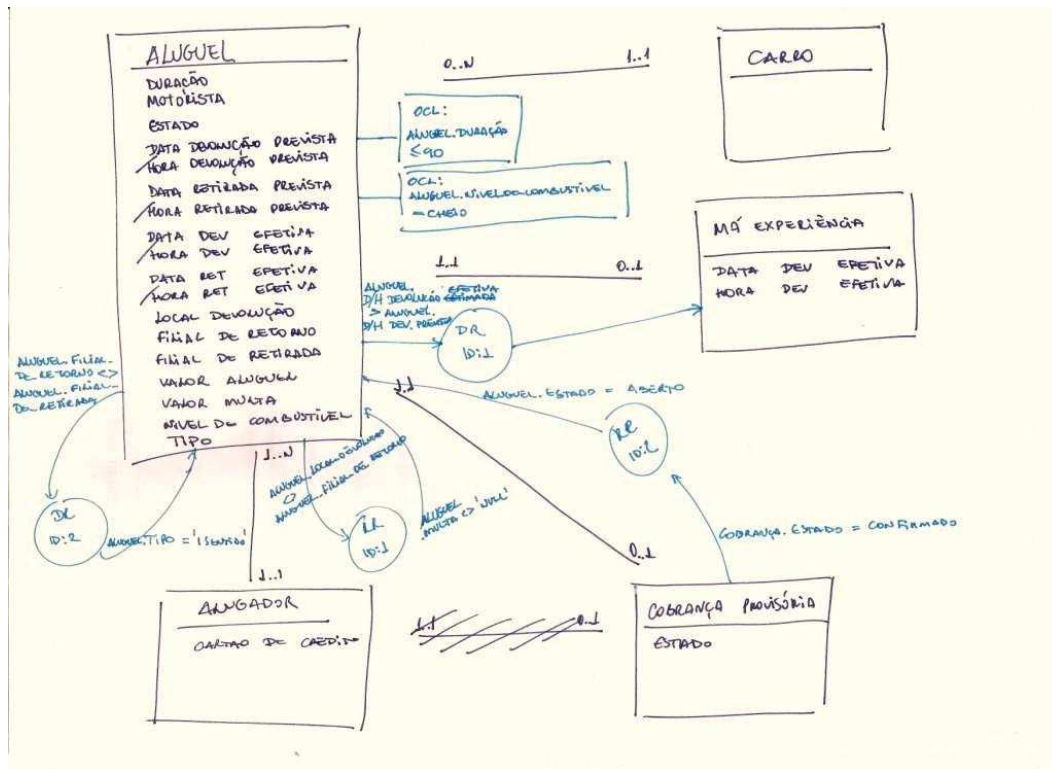 ALUGUEL
DURAÇÃO
MOTORISTA
ESTADO
DATA DEVOLUÇÃO PREVISTA
HORA DEVOLUÇÃO PREVISTA
DATA RETIRADA PREVISTA
HORA RETIRADA PREVISTA
DATA DEV EFETIVA
HORA DEV EFETIVA
DATA RET EFETIVA
HORA RET EFETIVA
LOCAL DEVOLUÇÃO
FILIAL DE RETORNO
FILIAL DE RETIRADA
VALOR ALUGUEL
VALOR MULTA
NIVEL DE COMBUSTÍVEL
TIPO
0..N
1..1
CARRO
OCL:
ALUGUEL.DURAÇÃO
≤90
OCL:
ALUGUEL.NIVELDOCOMBUSTIVEL
=CHEIO
1..1
0..1
MÁ EXPERIÊNCIA
DATA DEV EFETIVA
HORA DEV EFETIVA
ALUGUEL.
D/H DEVOLUÇÃO EFETIVA
> ALUGUEL.
D/H DEV. PREVISTA
DR
ID:1
ALUGUEL.FILIAL-
DE RETORNO <>
ALUGUEL.FILIAL-
DE RETIRADA
DR
ID:2
ALUGUEL.TIPO = '1SENTIDO'
1..N
1..1
ALUGUEL.LOCALDEVOLUÇÃO
<>
ALUGUEL.FILIAL DE RETORNO
RR
ID:1
ALUGUEL
.MULTA <> 'NULL'
1..1
0..1
ALUGUEL.ESTADO = ABERTO
RR
ID:2
COBRANÇA.ESTADO = CONFIRMADO
ALUGADOR
CARTAO DE CREDITO
1..1
0..1
COBRANÇA PROVISÓRIA
ESTADO